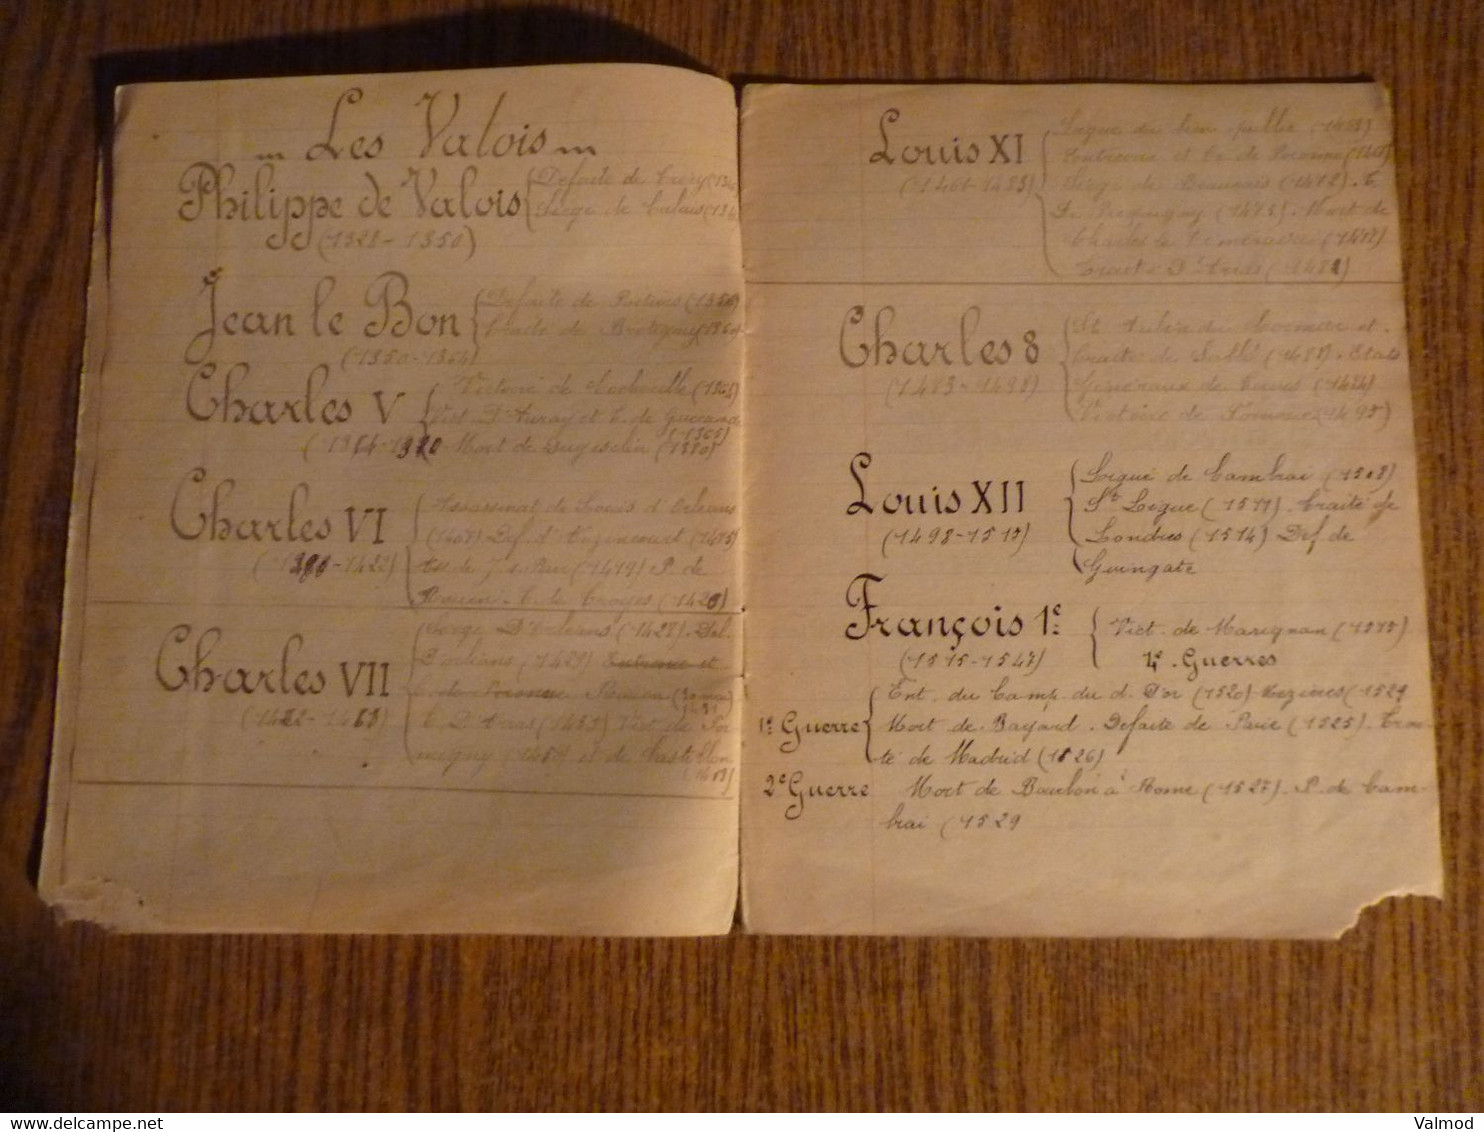 Les Valois
Philippe de Valois
Defaite de Crecy (134
Siège de Calais (134
(1328-1350)
Jean le Bon
Defaite de Poitiers (1356)
Traité de Bretigny (1360)
(1350-1364)
Charles V
Victoire de Cocherelle (1364)
Vict. D'Auray et T. de Guerande
(1365)
(1364-1380 Mort de Duguesclin (1380)
Charles VI
Assassinat de Louis d'Orléans
(1407) Def. d'Azincourt (1415)
(1380-1422)
Ass de J s. Peur (1419) P. de
Rouen. T. de Troyes (1420)
Charles VII
Siège D'Orléans (1428). Del.
D'orléans, (1429) Entrevue et
Peronne Rouen
(1422-1463)
T. D'Arras (1435) Vict. de For
migny (1450) et de Castillon
(1453)
Louis XI
(1461-1483)
Ligue du bien public (1465)
Entrevue et Tr. de Peronne (1468)
Siège de Beauvais (1472). T
De Picquigny (1475). Mort de
Charles le Temeraire (1477)
Traité D'Arras (1482)
Charles 8
(1483-1498)
St Aubin du Cormier et.
traité de Sablé (1488). Etats
Généraux de Tours (1484)
Victoire de Fornoue (1495)
Louis XII
(1498-1515)
Ligue de Cambrai (1508)
Ste Ligue (1511). Traité de
Londres (1514) Def. de
Guingate
François 1e
(1515-1547)
Vict. de Marignan (1515)
4. Guerres
Ent. du Camp. du d. D'or (1520)-Mezières (1521
1e Guerre
Mort de Bayard. Defaite de Pavie (1525). Trai-
té de Madrid (1526)
2e Guerre Mort de Bourbon à Rome (1527). P. de Cam-
brai (1529
Valmod